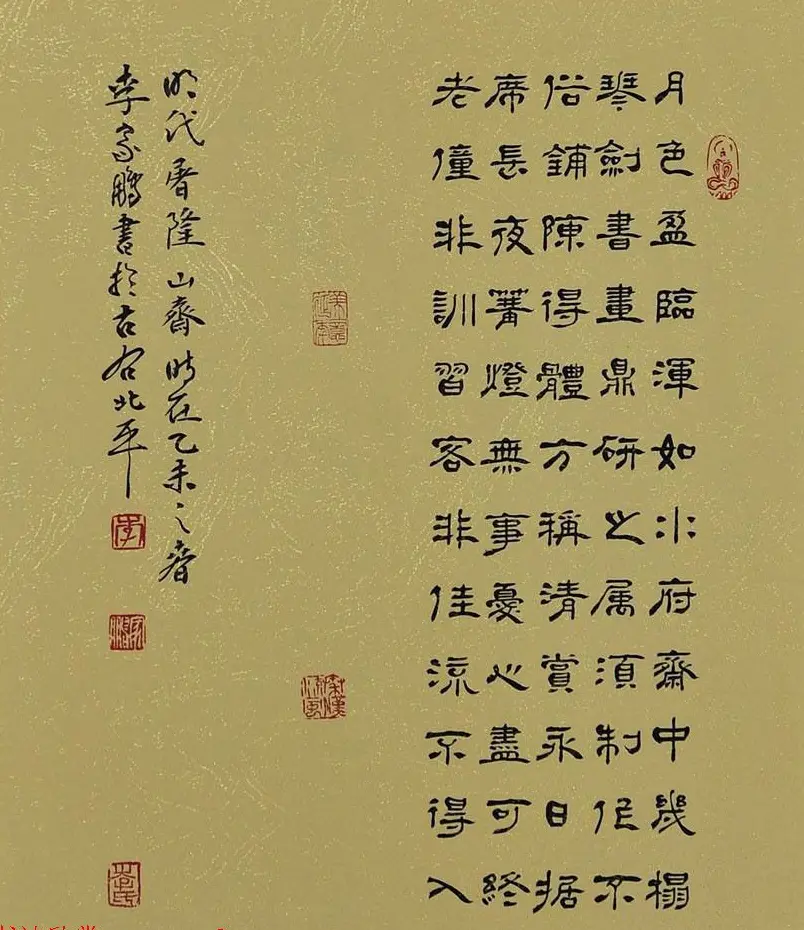 月色盈臨渾如水府齋中几榻
琴劍書畫鼎研之属須制作不
俗鋪陳得體方稱清賞永日据
席長夜篝燈無事憂心盡可終
老僮非訓習客非佳流不得入
明代屠隆山齋時在乙未之春
李家鵬書於古右北平